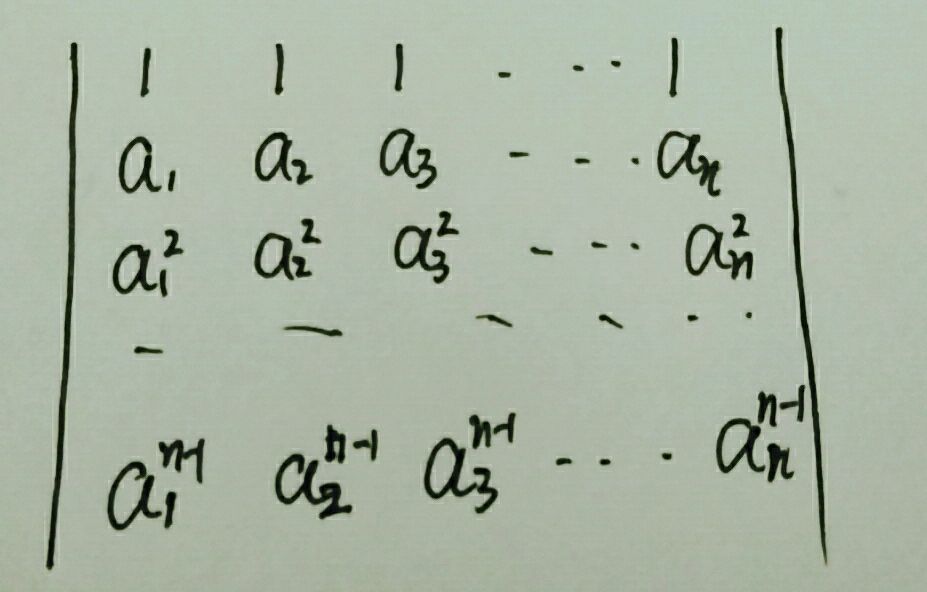 | 1 1 1 - - ·· 1 |
a₁ a₂ a₃ - - · aₙ
a₁² a₂² a₃² - - ·· aₙ²
- — - - · ·
a₁ⁿ⁻¹ a₂ⁿ⁻¹ a₃ⁿ⁻¹ - · · aₙⁿ⁻¹